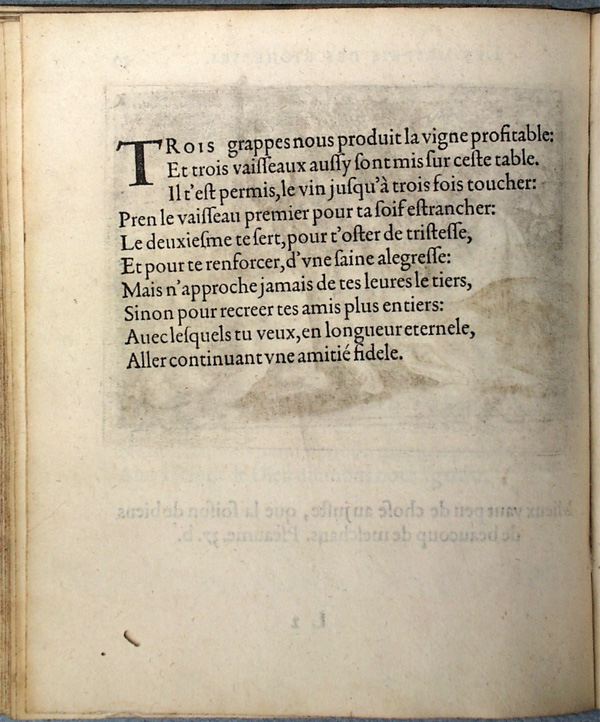 TROIS grappes nous produit la vigne profitable:
Et trois vaiſſeaux auſſy ſont mis ſur ceſte table.
Il t'eſt permis, le vin juſqu'à trois fois toucher:
Pren le vaiſſeau premier pour ta ſoif eſtrancher:
Le deuxieſme te ſert, pour t'oſter de triſteſſe,
Et pour te renforcer, d'vne ſaine alegreſſe:
Mais n'approche jamais de tes leures le tiers,
Sinon pour recreer tes amis plus entiers:
Auec leſquels tu veux, en longueur eternele,
Aller continuant vne amitié fidele.
Mieux vaut peu de choſe au juſte, que la foiſon de biens
de beaucoup de meſchans. Pſeaume. 37. b.
L 2